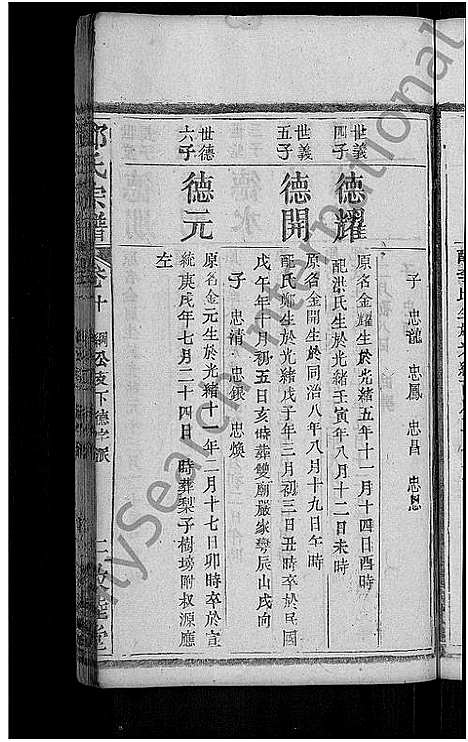 子 忠龍 忠鳳 忠昌 忠恩
世義四子
德耀
原名金耀生於光緒五年十一月十四日酉時
配洪氏生於光緒壬寅年八月十二日未時
世義五子
德開
原名金開生於同治八年八月十九日午時
配氏鄭生於光緒戊子年三月初三日丑時卒於民國
戊午年十月初五日亥時葬雙廟嚴家灣辰山戌向
子 忠清 忠銀 忠煥
世德六子
德元
原名金元生於光緒十一年二月十七日卯時卒於宣
統庚戌年七月二十四日 時葬梨子樹塝附叔源應
左
氏宗譜
卷十
公支下德字派
堂
MySearch International